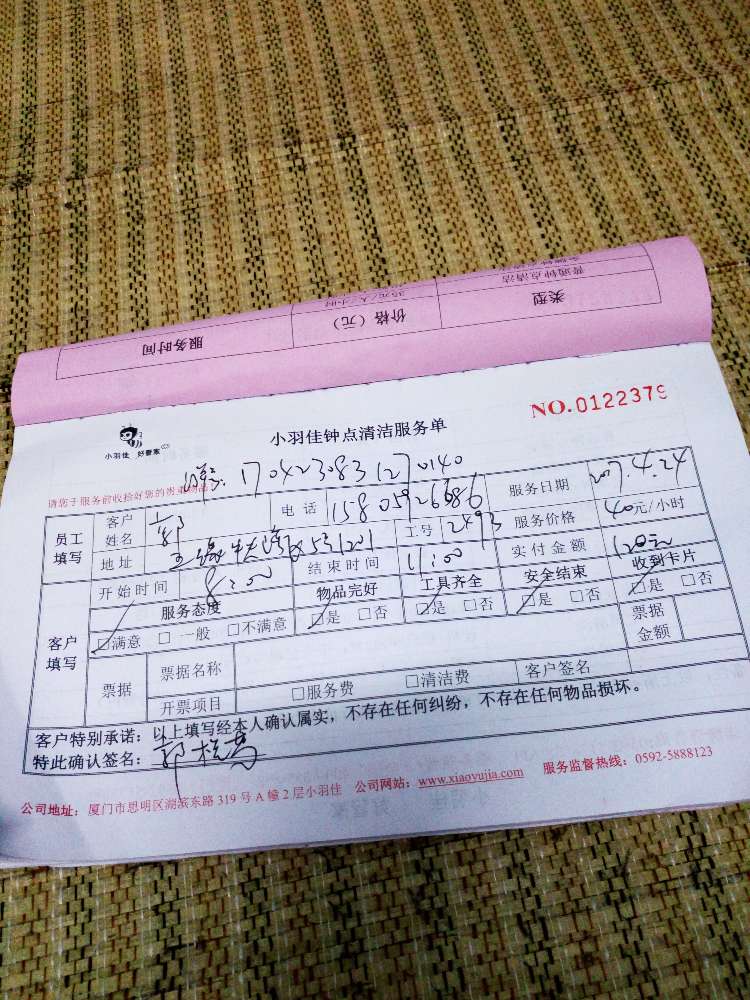 服务时间 价格（元） 类型
35元/人/小时 普通钟点清洁
NO.0122379
小羽佳 好管家
小羽佳钟点清洁服务单
17042308312 70140
请您于服务前收拾好您的贵重物品
员工填写 客户姓名 郭 电话 15805926686 服务日期 2017.4.24
地址 5号1201 工号 2493 服务价格 40元/小时
开始时间 8:00 结束时间 11:00 实付金额 120元
客户填写 服务态度 物品完好 工具齐全 安全结束 收到卡片
□满意 □一般 □不满意 □是 □否 □是 □否 □是 □否 □是 □否
票据 票据名称 票据金额
开票项目 □服务费 □清洁费 客户签名
客户特别承诺：以上填写经本人确认属实，不存在任何纠纷，不存在任何物品损坏。
特此确认签名： 郭
公司地址：厦门市思明区湖滨东路319号A幢2层小羽佳 公司网站：www.xiaoyujia.com 服务监督热线：0592-5888123